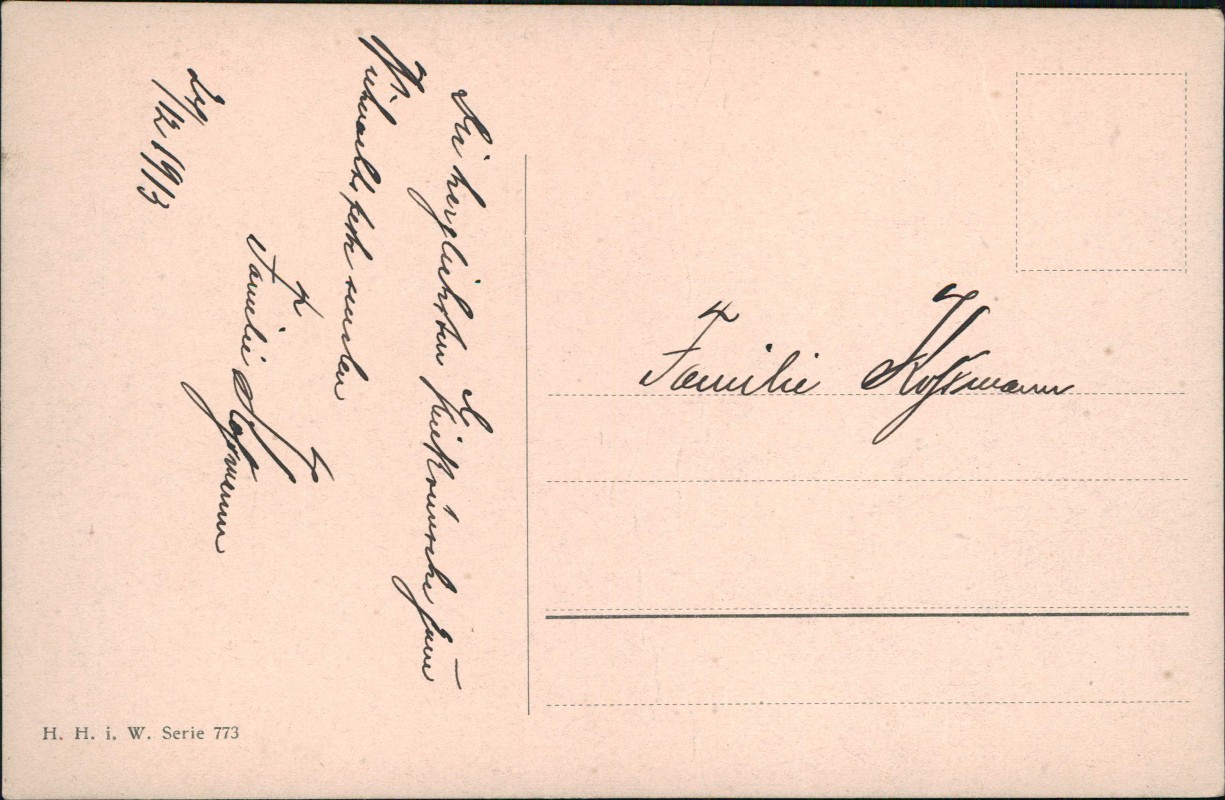 Die herzlichsten Glückwünsche zum
Weihnachtsfeste senden
Familie Hofmann
24/12 1913
Familie Hofmann
H. H. i. W. Serie 773